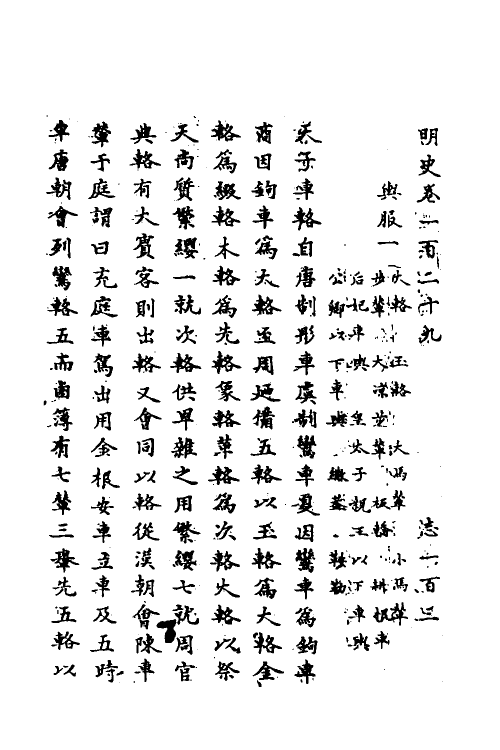 明史卷一百二十九　志一百三
輿服一
大輅　玉輅　大馬輦　小馬輦
步輦　大涼步輦　板輅　耕根車
后妃車輿　皇太子親王以下車輿
公卿以下車輿　繖蓋　鞍勒
天子車輅自唐制彤車虞制鸞車夏因鸞車為鉤車
商因鉤車為大輅至周廼備五輅以玉輅為大輅金
輅為綴輅木輅為先輅象輅革輅為次輅大輅以祭
天尚質繁纓一就次輅供卑雜之用繁纓七就周官
典輅有大賓客則出輅又會同以輅從漢朝會陳車
輦于庭謂曰充庭車駕出用金根安車立車及五時
車唐朝會列鸞輅五而鹵簿有七輦三轝先五輅以